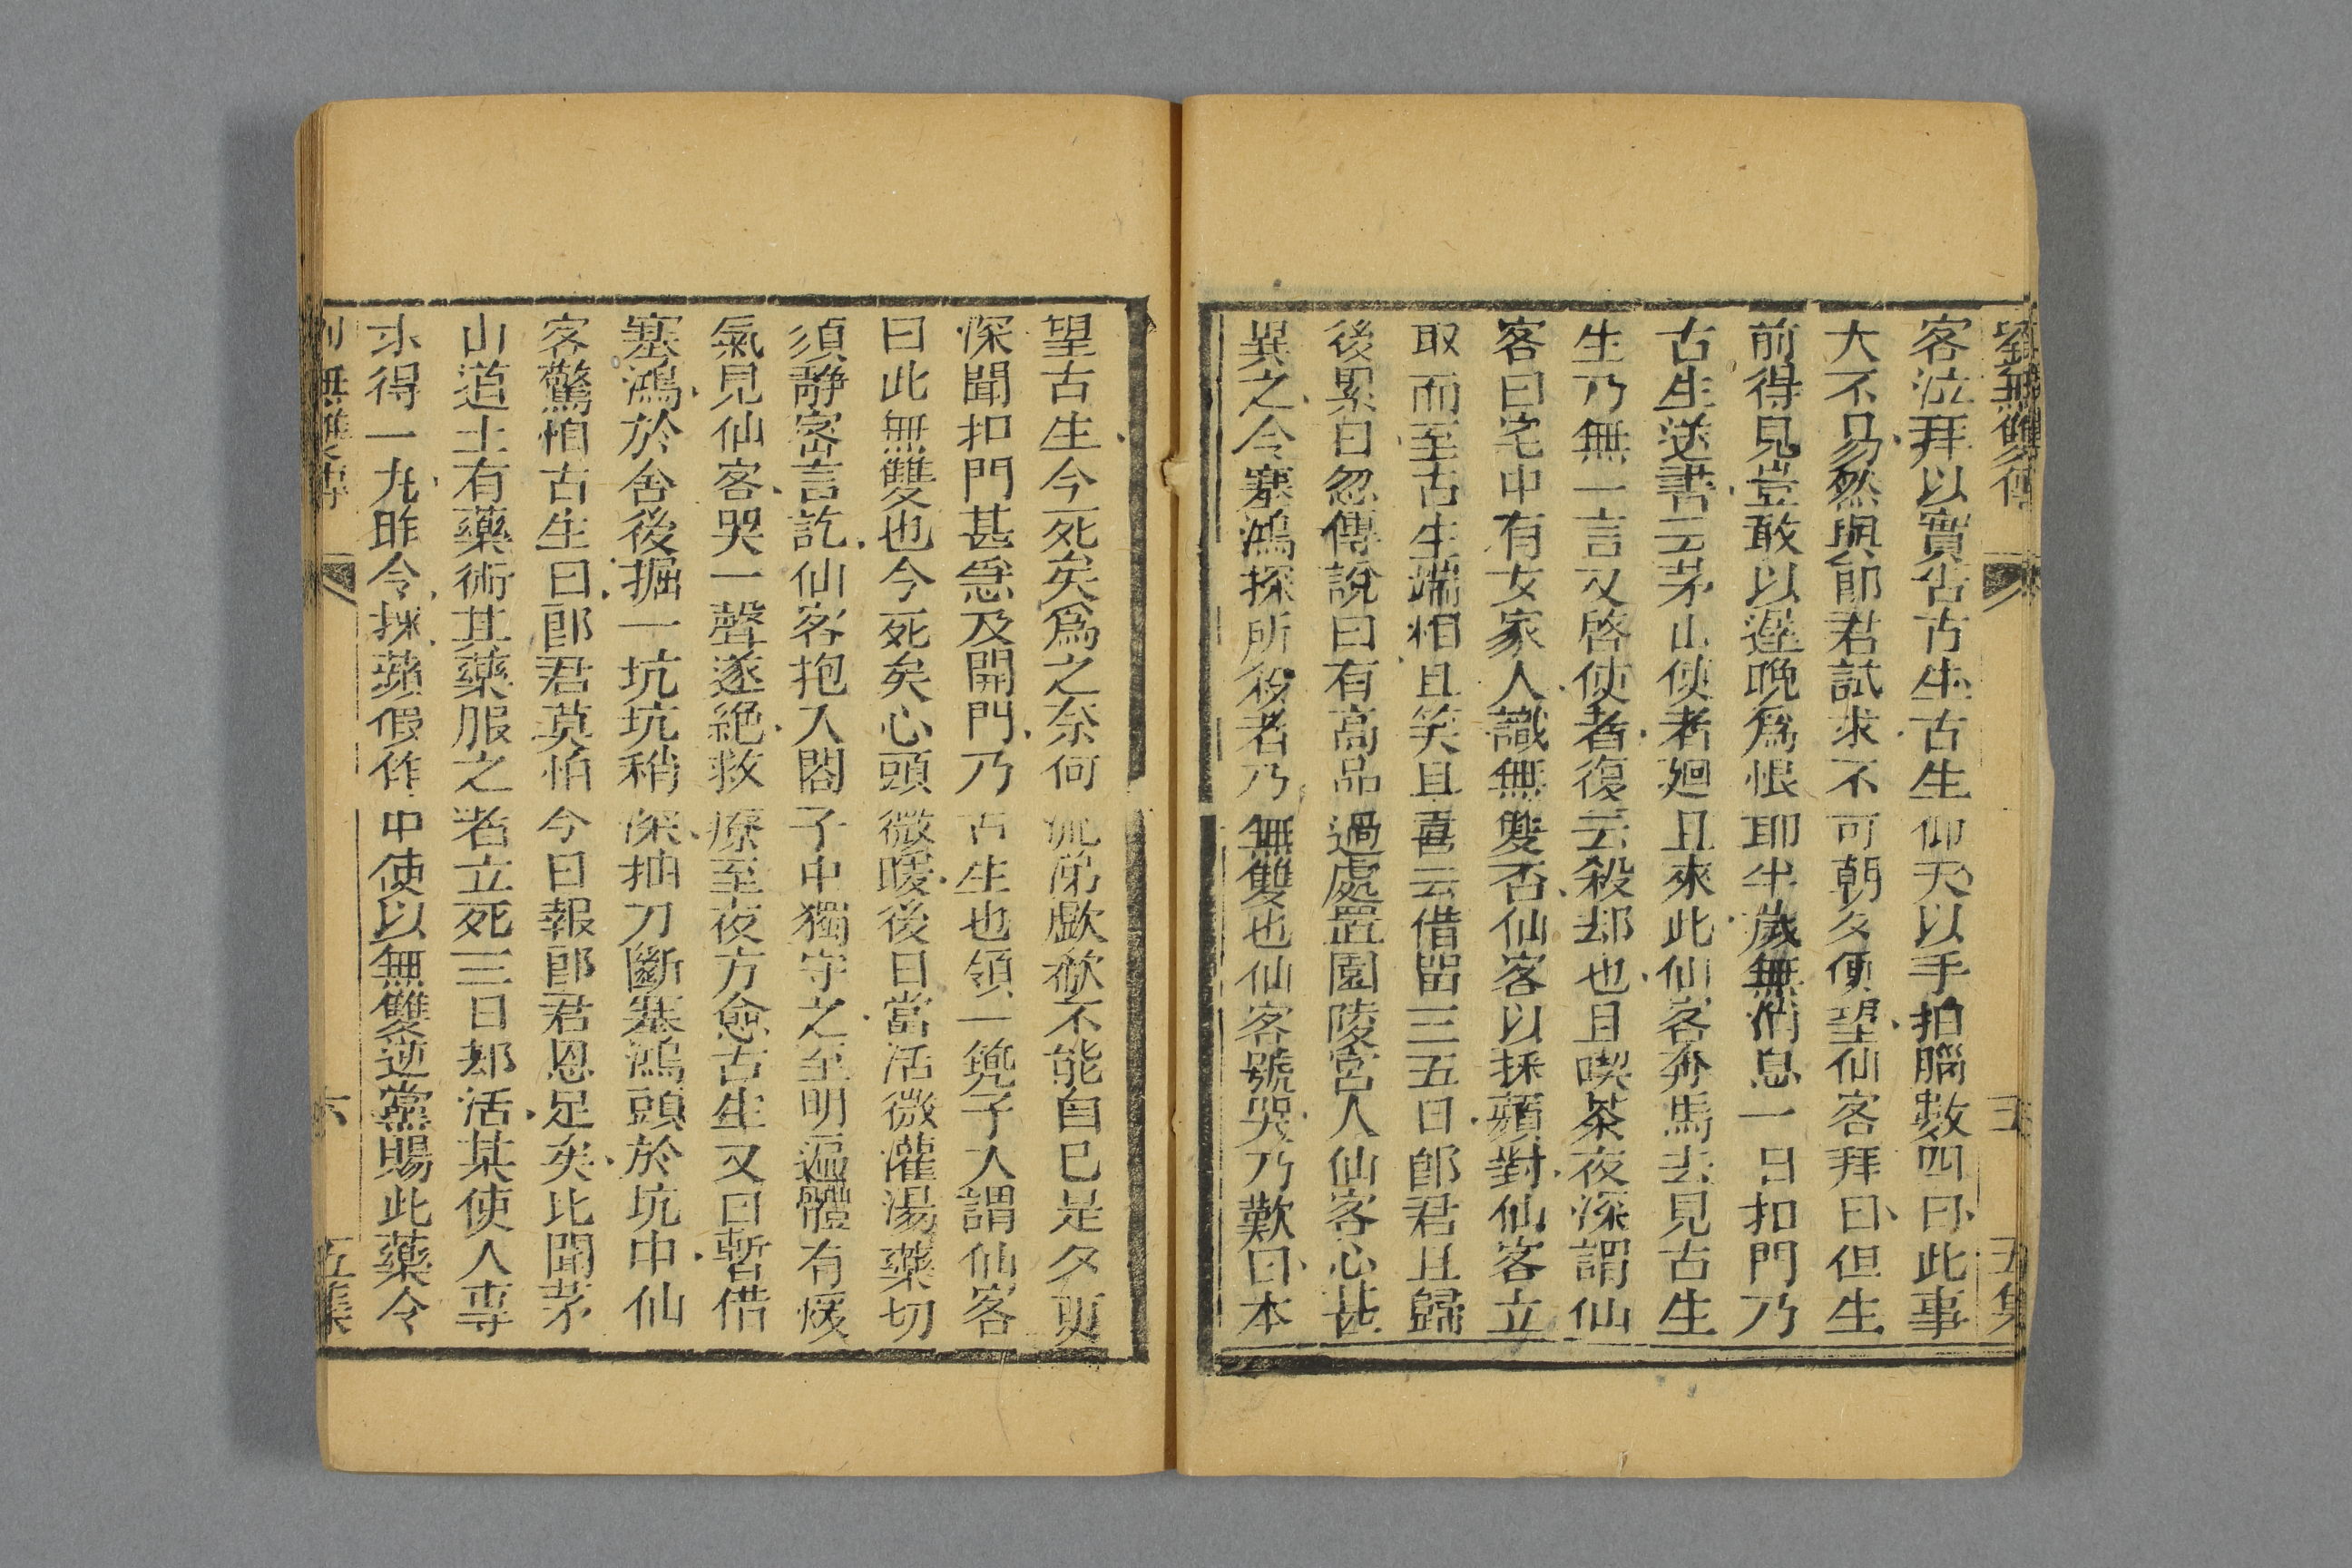 劉無雙傳 五 五集
客泣拜以實告古生古生仰天以手拍腦數四曰此事
大不易然與郎君試求不可朝夕便望仙客拜曰但生
前得見豈敢以遲晚爲恨耶半歲無消息一日扣門乃
古生送書云茅山使者廻且來此仙客奔馬去見古生
生乃無一言又啓使者復云殺却也且喫茶夜深謂仙
客曰宅中有女家人識無雙否仙客以採蘋對仙客立
取而至古生端相且笑且喜云借留三五日郎君且歸
後累日忽傳說曰有高品過處置園陵宮人仙客心甚
異之令塞鴻探所殺者乃無雙也仙客號哭乃歎曰本
望古生今死矣爲之奈何流涕歔欷不能自已是夕更
深聞扣門甚急及開門乃古生也領一篼子入謂仙客
曰此無雙也今死矣心頭微暖後日當活微灌湯藥切
須靜密言訖仙客抱入閤子中獨守之至明遍體有煖
氣見仙客哭一聲遂絕救療至夜方愈古生又曰暫借
塞鴻於舍後掘一坑坑稍深抽刀斷塞鴻頭於坑中仙
客驚怕古生曰郎君莫怕今日報郎君恩足矣比聞茅
山道士有藥術其藥服之者立死三日却活某使人專
求得一丸昨令採蘋假作中使以無雙逆黨賜此藥令
無雙傳 六 五集